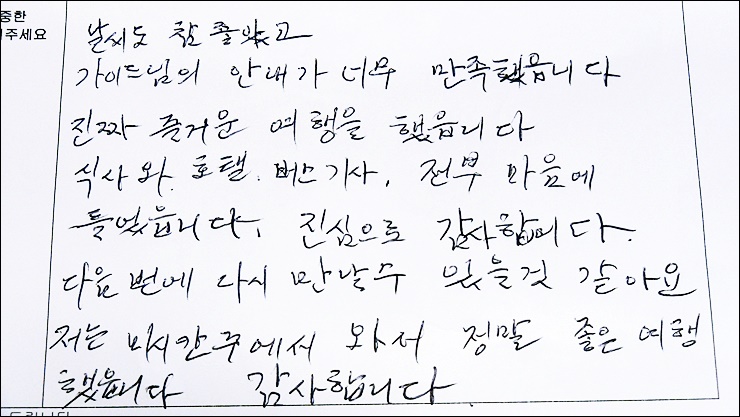 중한
주세요
날씨도 참 좋았고
가이드님의 안내가 너무 만족했읍니다
진짜 즐거운 여행을 했읍니다
식사와 호텔. 버스기사, 전부 마음에
들었읍니다. 진심으로 감사합니다.
다음 번에 다시 만날수 있을것 같아요
저는 미시간주에서 와서 정말 좋은 여행
했읍니다 감사합니다.
드립니다